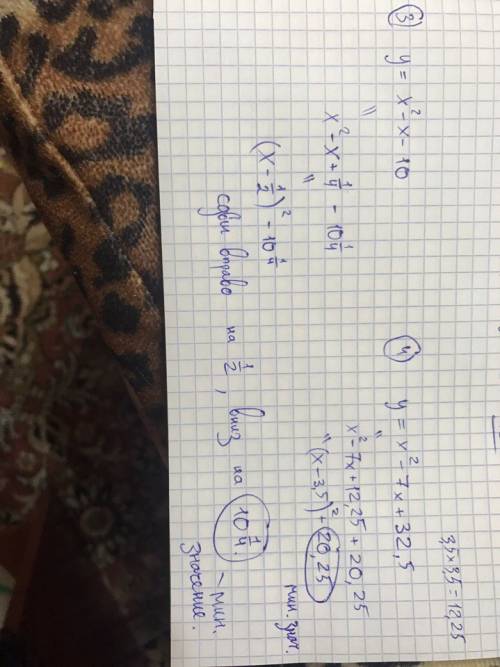 ③ y = x² - x - 10
"
x² - x + 1/4 - 10 1/4
"
(x - 1/2)² - 10 1/4
сдвиг вправо на 1/2, вниз на 10 1/4. – мин.
значение.
3,5 × 3,5 = 12,25
④ y = x² - 7x + 32,5
"
x² - 7x + 12,25 + 20,25
"
(x - 3,5)² + 20,25
мин. знач.